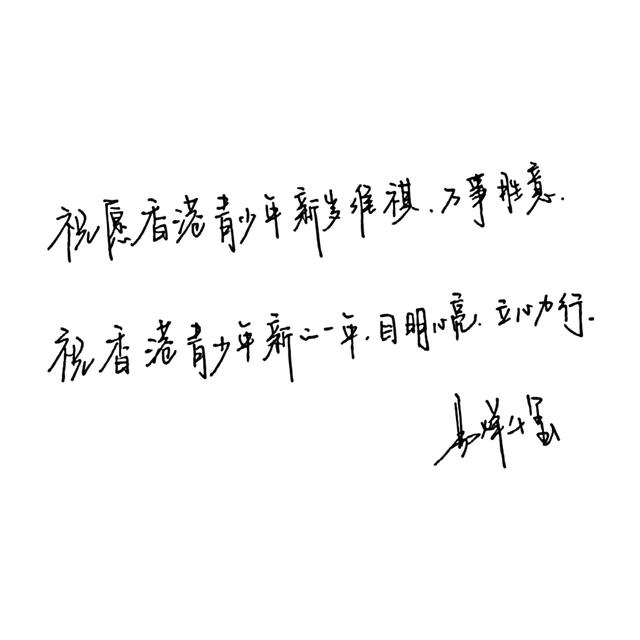 祝愿香港青少年新岁维祺、万事胜意.
祝香港青少年新的一年,目明心亮、立心力行.
易烊千玺